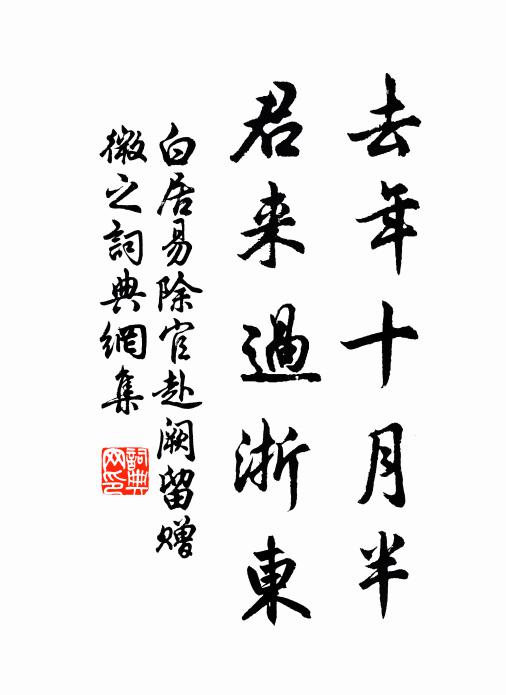 去年十月半
君来過浙東
白居易除官赴阙留贈
微之詞典網集
詞典网印